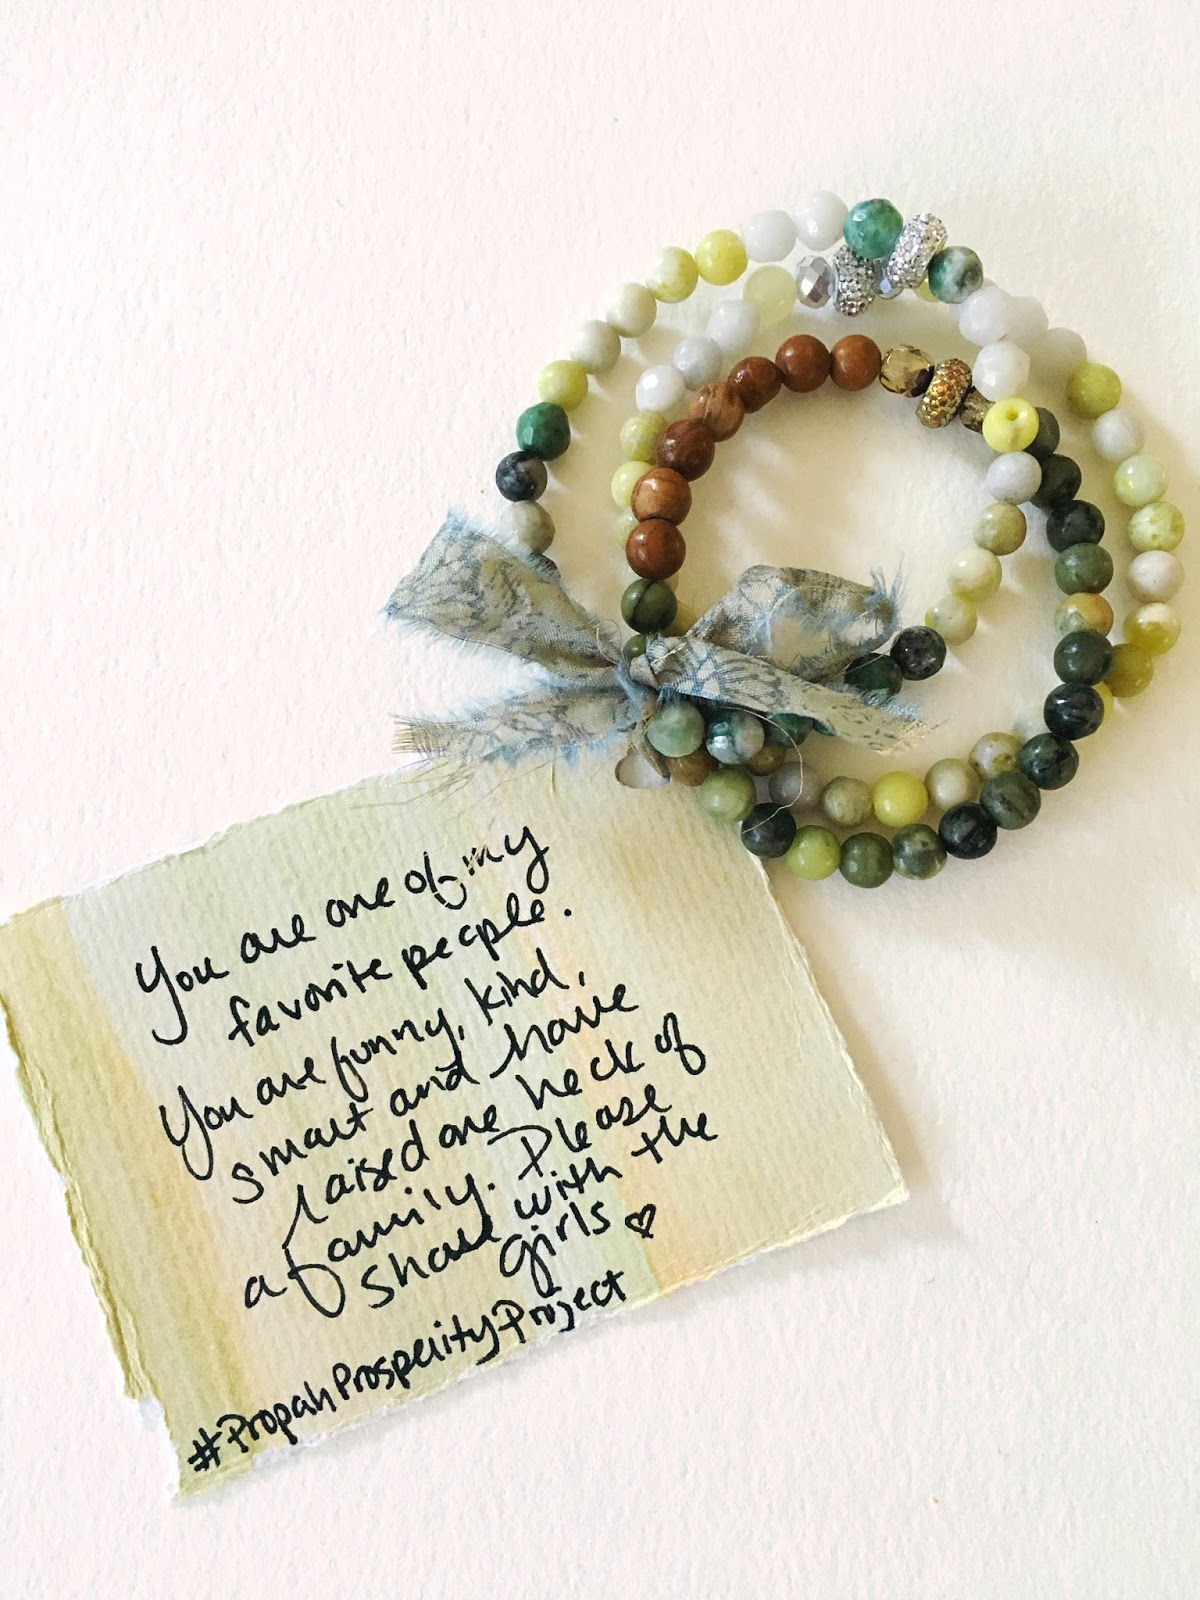 You are one of my
favorite people.
You are funny, kind,
smart and have
raised one heck of
a family. Please
share with the
girls ♡
#PropahProsperityProject